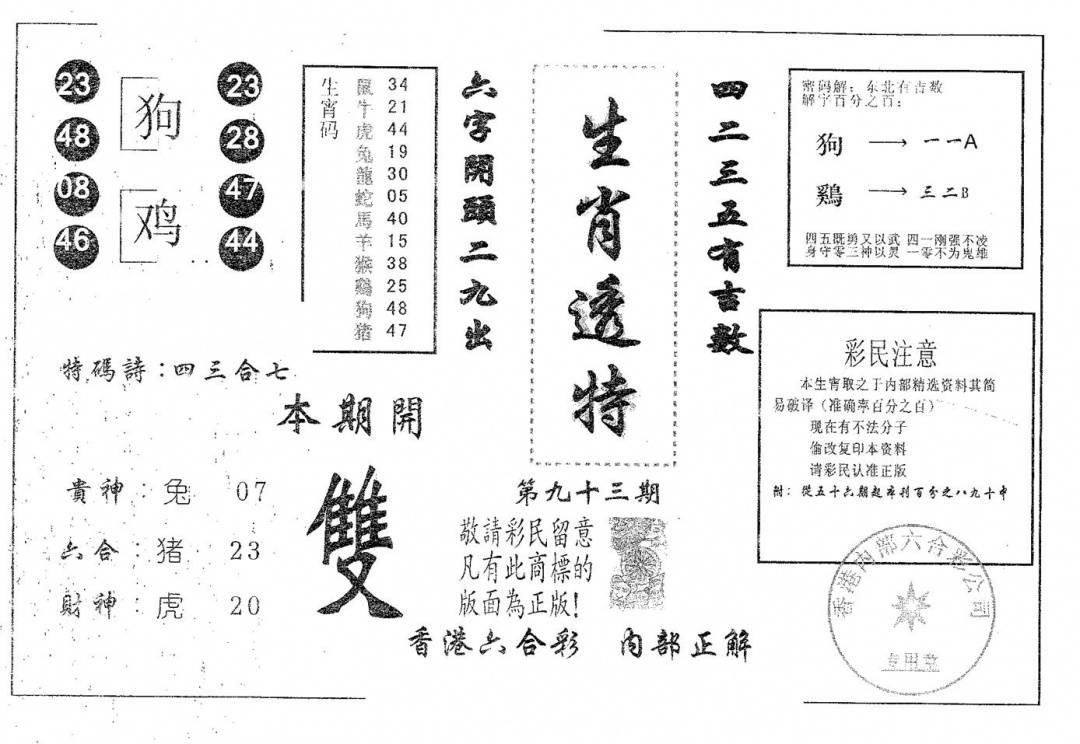 23
48
08
46
狗
鸡
23
28
47
44
生宵码
鼠 34
牛 21
虎 44
兔 19
龍 30
蛇 05
馬 40
羊 15
猴 38
鷄 25
狗 48
猪 47
六字開頭二九出
生肖透特
四二三五有吉数
密码解：东北有吉数
解字百分之百：
狗 → 一一A
鷄 → 三二B
四五既勇又以武 四一刚强不凌
身守零三神以灵 一零不为鬼雄
彩民注意
本生宵取之于内部精选资料其简
易破译（准确率百分之百）
现在有不法分子
偷改复印本资料
请彩民认准正版
附：從五十六期起准刊百分之八九十中
特碼詩：四三合七
本期開
雙
貴神：兔 07
六合：猪 23
財神：虎 20
第九十三期
敬請彩民留意
凡有此商標的
版面為正版！
香港六合彩 内部正解
香港内部六合彩公司
专用章